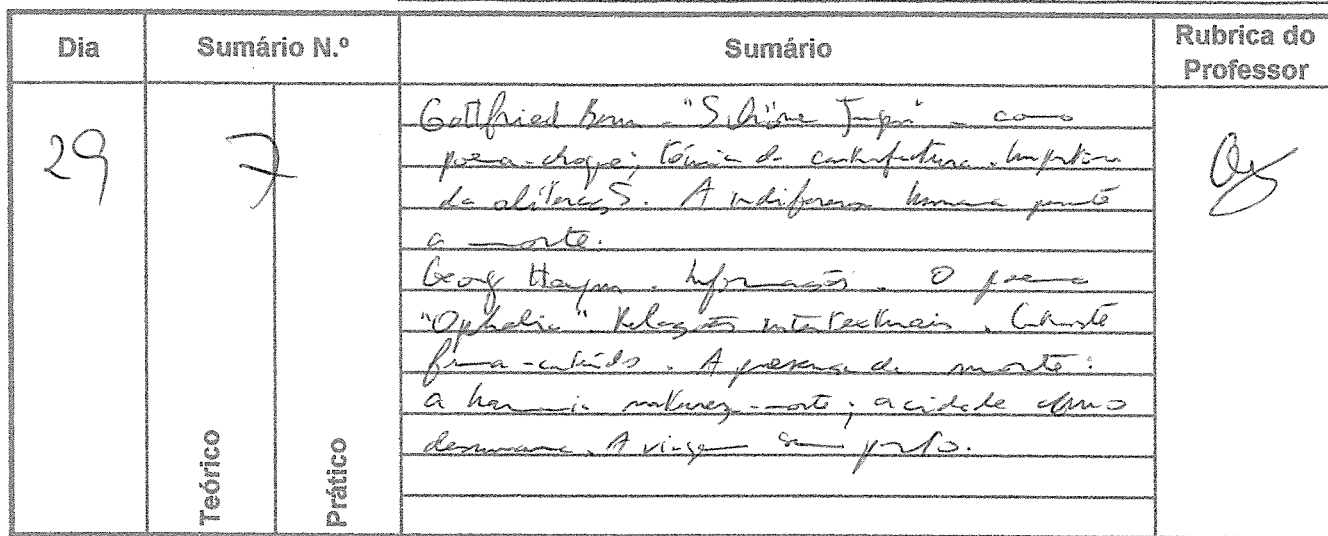 Dia Sumário N.º Sumário Rubrica do Professor
29 7
Gottfried Benn - "Schöne Jugend" - como
poema-choque; técnica da contrafactura. Importância
da aliteração. A indiferença humana perante
a morte.
Georg Heym. Informações. O poema
"Ophelia". Relações intertextuais. Contraste
forma-conteúdo. A presença da morte:
a harmonia natureza-morte; a cidade como
desumana. A viagem sem porto.
Teórico
Prático